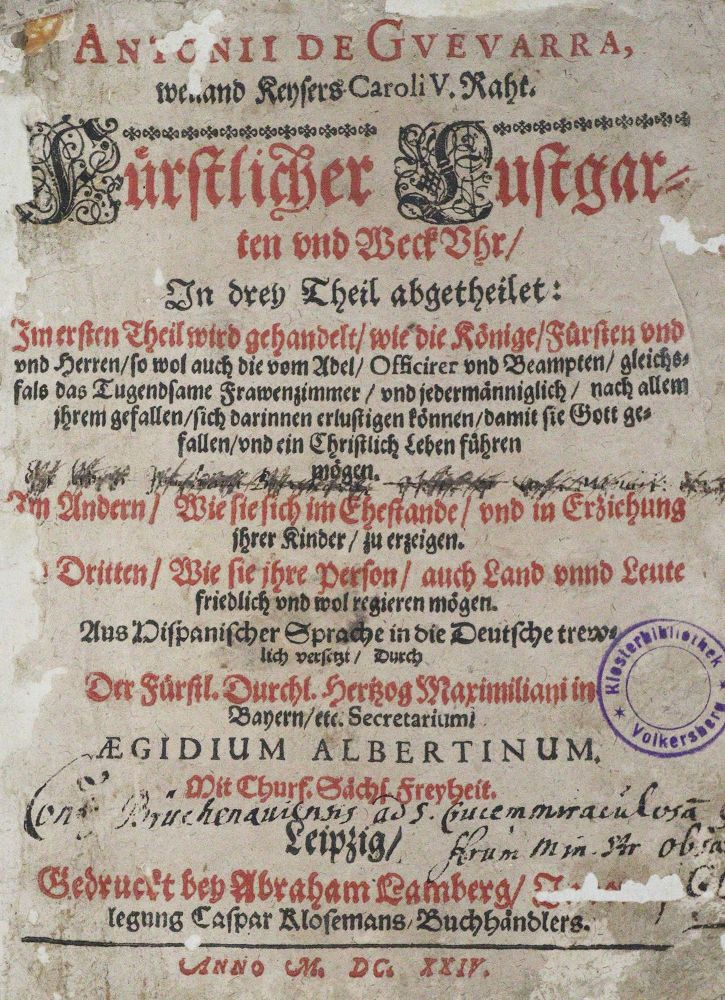 ANTONII DE GVEVARRA,
weiland Keysers Caroli V. Raht.
Fürstlicher Lustgar-
ten vnd Weck Vhr/
In drey Theil abgetheilet:
Im ersten Theil wird gehandelt/ wie die Könige/ Fürsten vnd
vnd Herren/ so wol auch die vom Adel/ Officirer vnd Beampten/ gleichs-
fals das Tugendsame Frawenzimmer/ vnd jedermänniglich/ nach allem
jhrem gefallen/ sich darinnen erlustigen können/ damit sie Gott ge-
fallen/ vnd ein Christlich Leben führen
mögen.
Im Andern/ Wie sie sich im Ehestande/ vnd in Erziehung
jhrer Kinder/ zu erzeigen.
Dritten/ Wie sie jhre Person/ auch Land vnnd Leute
friedlich vnd wol regieren mögen.
Aus Hispanischer Sprache in die Deutsche trew-
lich versetzt/ Durch
Der Fürstl. Durchl. Hertzog Maximiliani in
Bayern/ etc. Secretarium
ÆGIDIUM ALBERTINUM.
Mit Churf. Sächs. Freyheit.
Conv. Brüchenauiensis ad S. Crucem miraculosā
Leipzig/
frūm Min. Str obs
Gedruckt bey Abraham Lamberg/
legung Caspar Klosemans/ Buchhändlers.
ANNO M. DC. XXIV.
Klosterbibliothek
* Volkersberg *